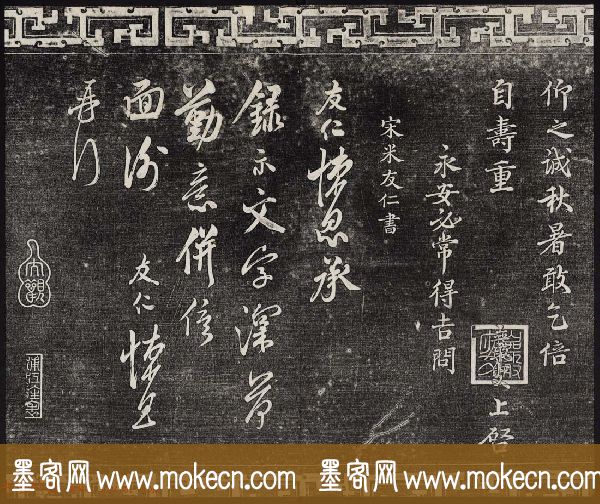 仰之诚秋暑敢乞倍
自壽重
永安必常得吉問
上啓
宋米友仁書
友仁悚息承
録示文字深荷
勤意併俟
面謝
友仁悚息
再行
墨客网 www.mokecn.com 墨客网 www.mokecn.com